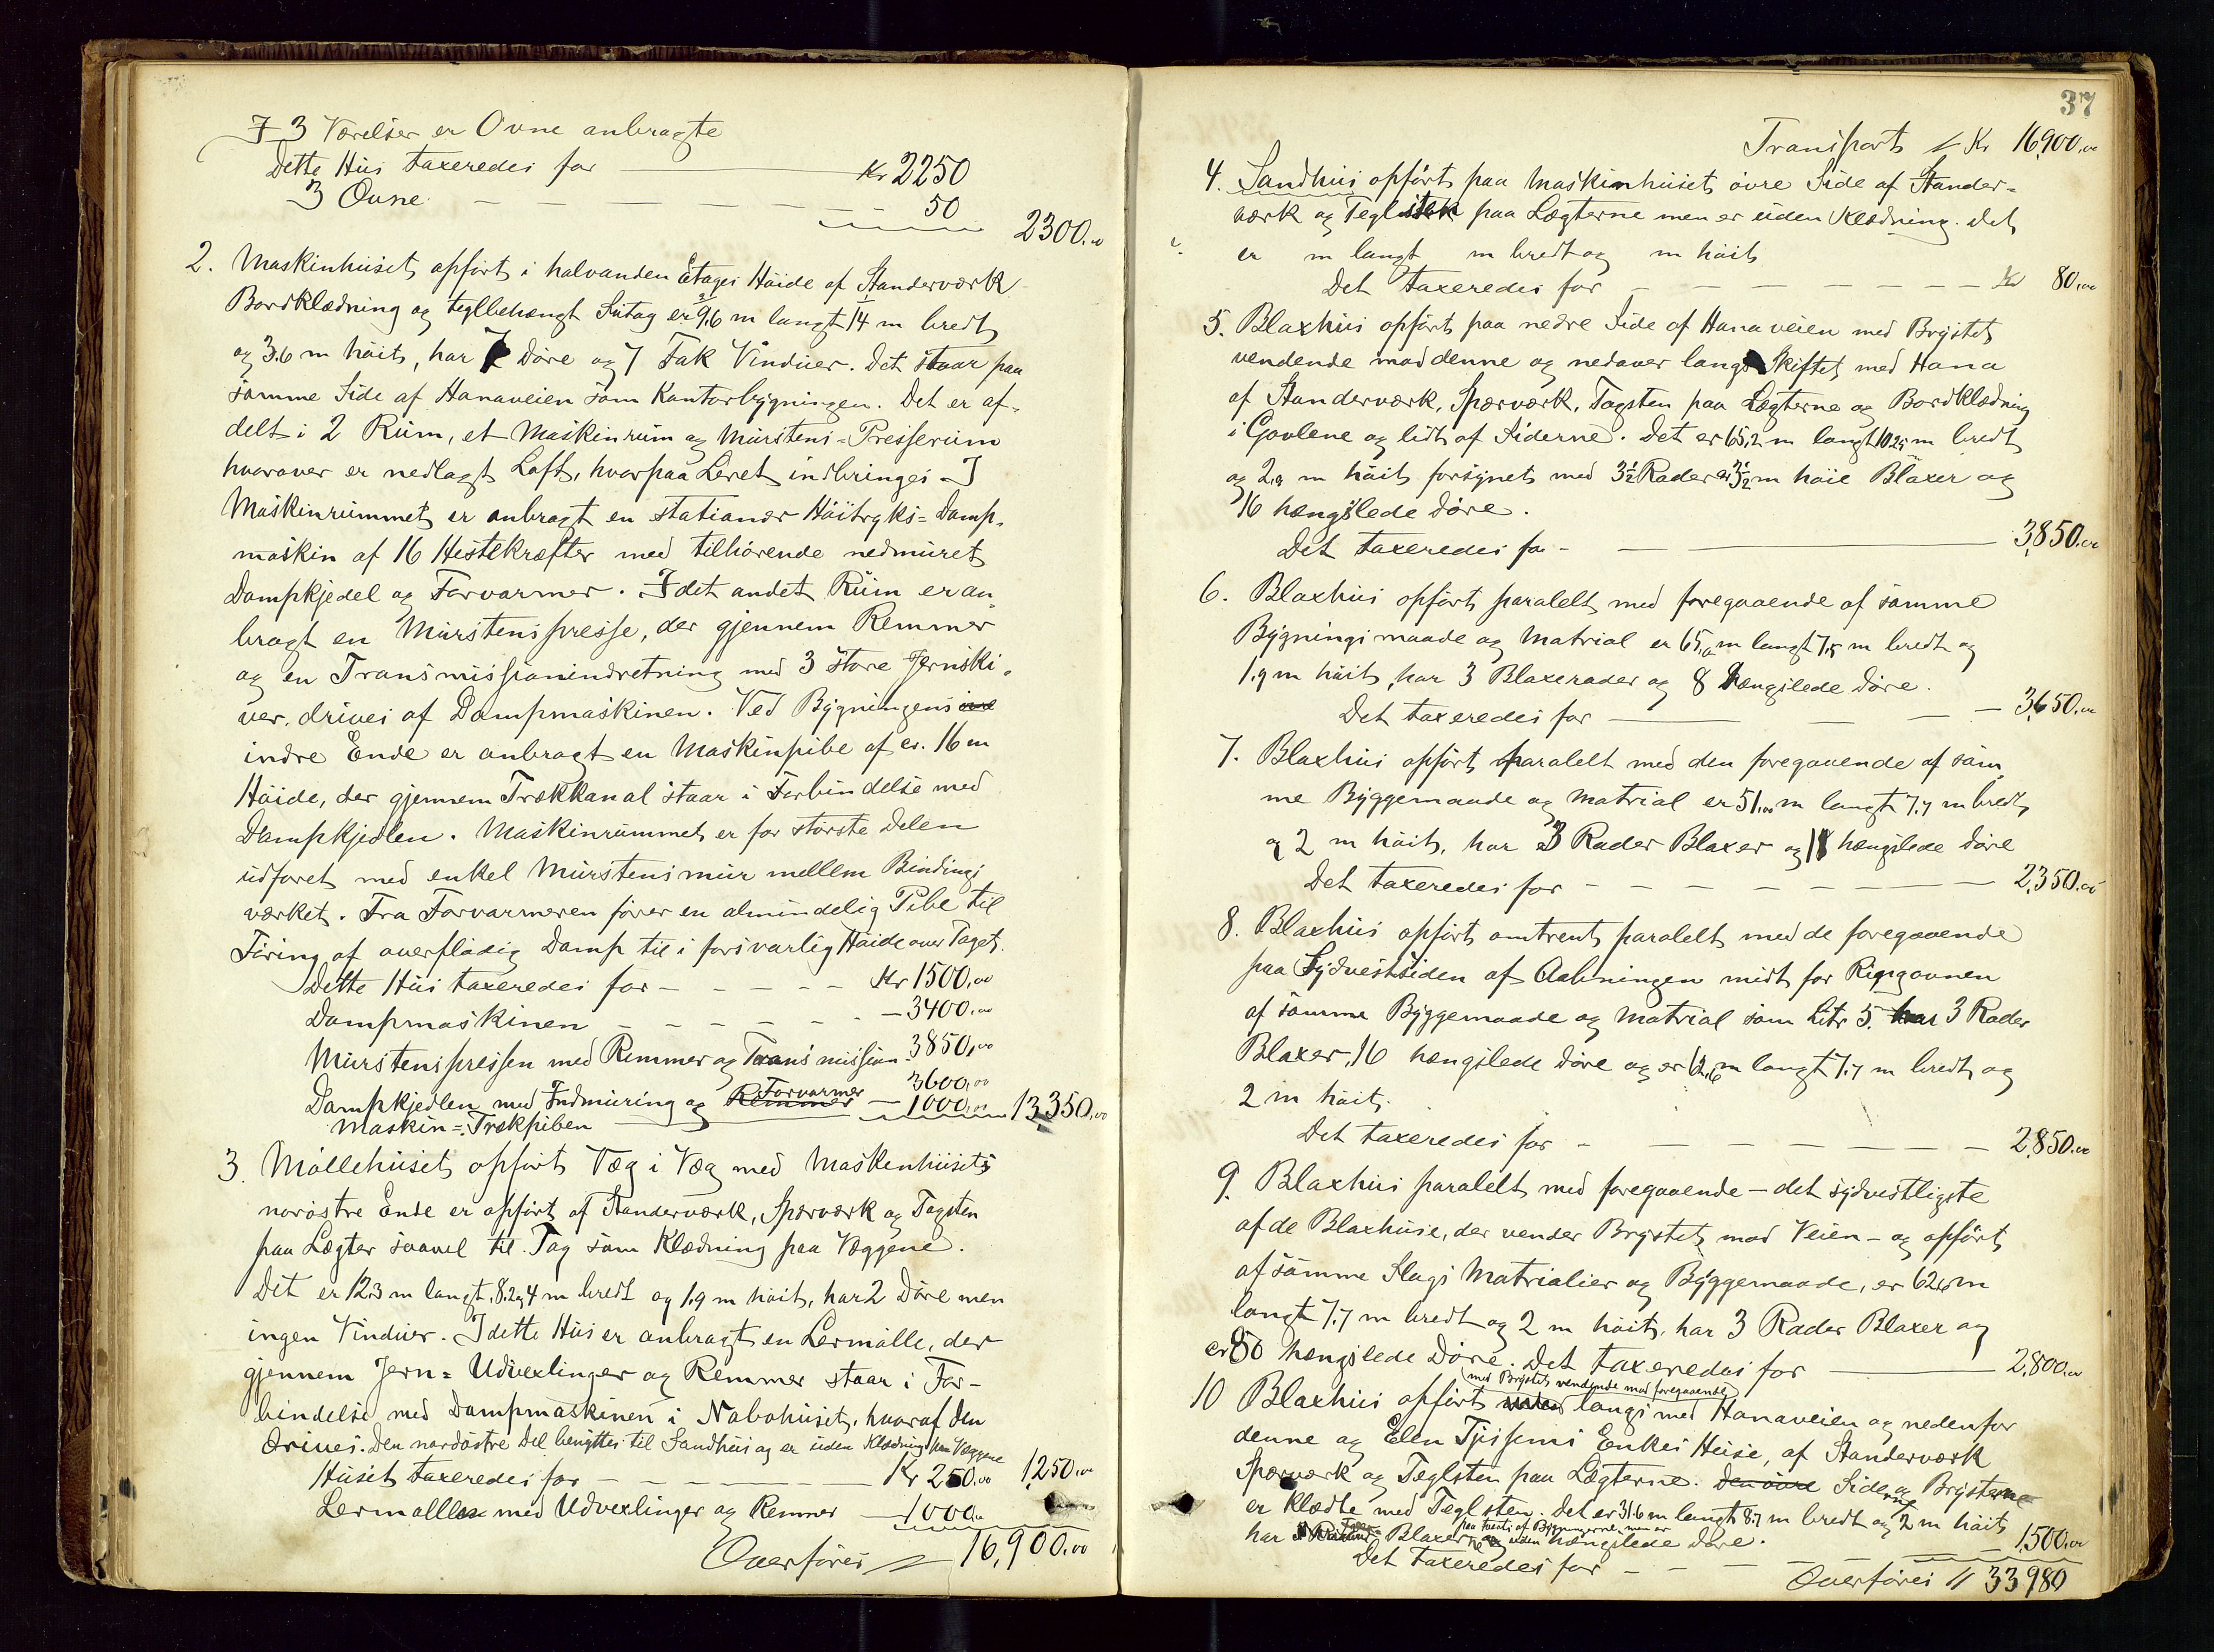 I 3 Værelser er Ovne anbragte
Dette Hus taxeredes for Kr 2250
3 Ovne 50 2300.00
2. Maskinhuset opført i halvanden Etages Høide af Standerværk
Bordklædning og teglbehængt Sutag er 9,6 m langt 14 m bredt
og 3.6 m høit, har 7 Døre og 7 Fak Vinduer. Det staar paa
samme Side af Hanaveien som Kontorbygningen. Det er af-
delt i 2 Rum, et Maskinrum og Murstens-Presserum
hvorover er nedlagt Loft, hvorpaa Leret indbringes. I
Maskinrummet er anbragt en stationær Høitryks-Damp-
maskin af 16 Hestekræfter med tilhørende nedmuret
Dampkjedel og Forvarmer. I det andet Rum er an-
bragt en Murstenspresse, der gjennem Remmer
og en Transmissionindretning med 3 store Jernski-
ver, drives af Dampmaskinen. Ved Bygningens
indre Ende er anbragt en Maskinpibe af er. 16 m
Høide, der gjennem Trækkanal staar i Forbindelse med
Dampkjedlen. Maskinrummet er for største Delen
udforet med enkel Murstensmur mellem Bindings
værket. Fra Forvarmeren fører en almindelig Pibe til
Føring af overflødig Damp til i forsvarlig Høide over Taget.
Dette Hus taxeredes for - Kr 1500,00
Dampmaskinen - 3400.00
Murstenspressen med Remmer og Transmission - 3850,00
Dampkjedlen med Indmuring og Remmer Forvarmer - 3600,00
Maskin-Trækpiben 1000,00 13350,00
3. Møllehuset opført Væg i Væg med Maskenhusets
norøstre Ende er opført af Standerværk, Sperværk og Tagsten
paa Lægter saavel til Tag som Klædning paa Væggene.
Det er 12,3 m langt, 8,2 og 4 m bredt og 1.9 m høit, har 2 Døre men
ingen Vinduer. I dette Hus er anbragt en Lermølle, der
gjennem Jern-Udvexlinger og Remmer staar i For-
bindelse med Dampmaskinen i Nabohuset, hvoraf den
drives. Den nordøstre Del benyttes til Sandhus og er uden Klædning paa Væggene
Huset taxeredes for - Kr 250.00 1250.00
Lermøllen med Udvexlinger og Remmer - 1000.00
Overføres 16,900.00
37
Transport Kr 16900.00
4. Sandhus opført paa Maskinhusets øvre Side af Stander-
værk og Teglsten paa Lægterne men er uden Klædning. Det
er m langt m bredt og m høit
Det taxeredes for - Kr 80,00
5. Blaxhus opført paa nedre Side af Hanaveien med Brystet
vendende mod denne og nedover langs Skiftet med Hana
af Standerværk, Sperværk, Tagsten paa Lægterne og Bordklædning
i Gavlene og lidt af Siderne. Det er 65,2 m langt 10,25 m bredt
og 2,9 m høit forsynet med 3½ Rader a 3½ m høie Blaxer og
16 hængslede Døre.
Det taxeredes for - 3,850.00
6. Blaxhus opført paralelt med foregaaende af samme
Bygningsmaade og Matrial er 65,0 m langt 7,5 m bredt og
1.9 m høit, har 3 Blaxerader og 8 hængslede Døre.
Det taxeredes for - 3,650.00
7. Blaxhus opført paralelt med den foregaaende af sam
me Byggemaade og Matrial er 51,00 m langt 7.7 m bredt,
og 2 m høit, har 3 Rader Blaxer og 18 hængslede Døre
Det taxeredes for - 2,350.00
8. Blaxhus opført omtrent paralelt med de foregaaende
paa Sydvestsiden af Aabningen midt for Ringovnen
af samme Byggemaade og Matrial som Litr 5. har 3 Rader
Blaxer, 16 hængslede Døre og er 62,6 m langt 7.7 m bredt og
2 m høit.
Det taxeredes for - 2,850.00
9. Blaxhus paralelt med foregaaende - det sydvestligste
af de Blaxhuse, der vender Brystet mod Veien - og opført
af samme Slags Matrialier og Byggemaade, er 62,6 m
langt 7.7 m bredt og 2 m høit, har 3 Rader Blaxer og
er 80 hængslede Døre. Det taxeredes for 2,800.00
(med Brystet vendende mod foregaaende)
10 Blaxhus opført langs med Hanaveien og nedenfor
denne og Elen Enkes Huse, af Standerværk
Sperværk og Teglsten paa Lægterne. Den øvre Siderne og Brysterne
er klædte med Teglsten. Det er 31.6 m langt 8.7 m bredt og 2 m høit
paa af Bygningerne men er
har Blaxer uden hængslede Døre. 1,500.00
Det taxeredes for -
Overføres 33980